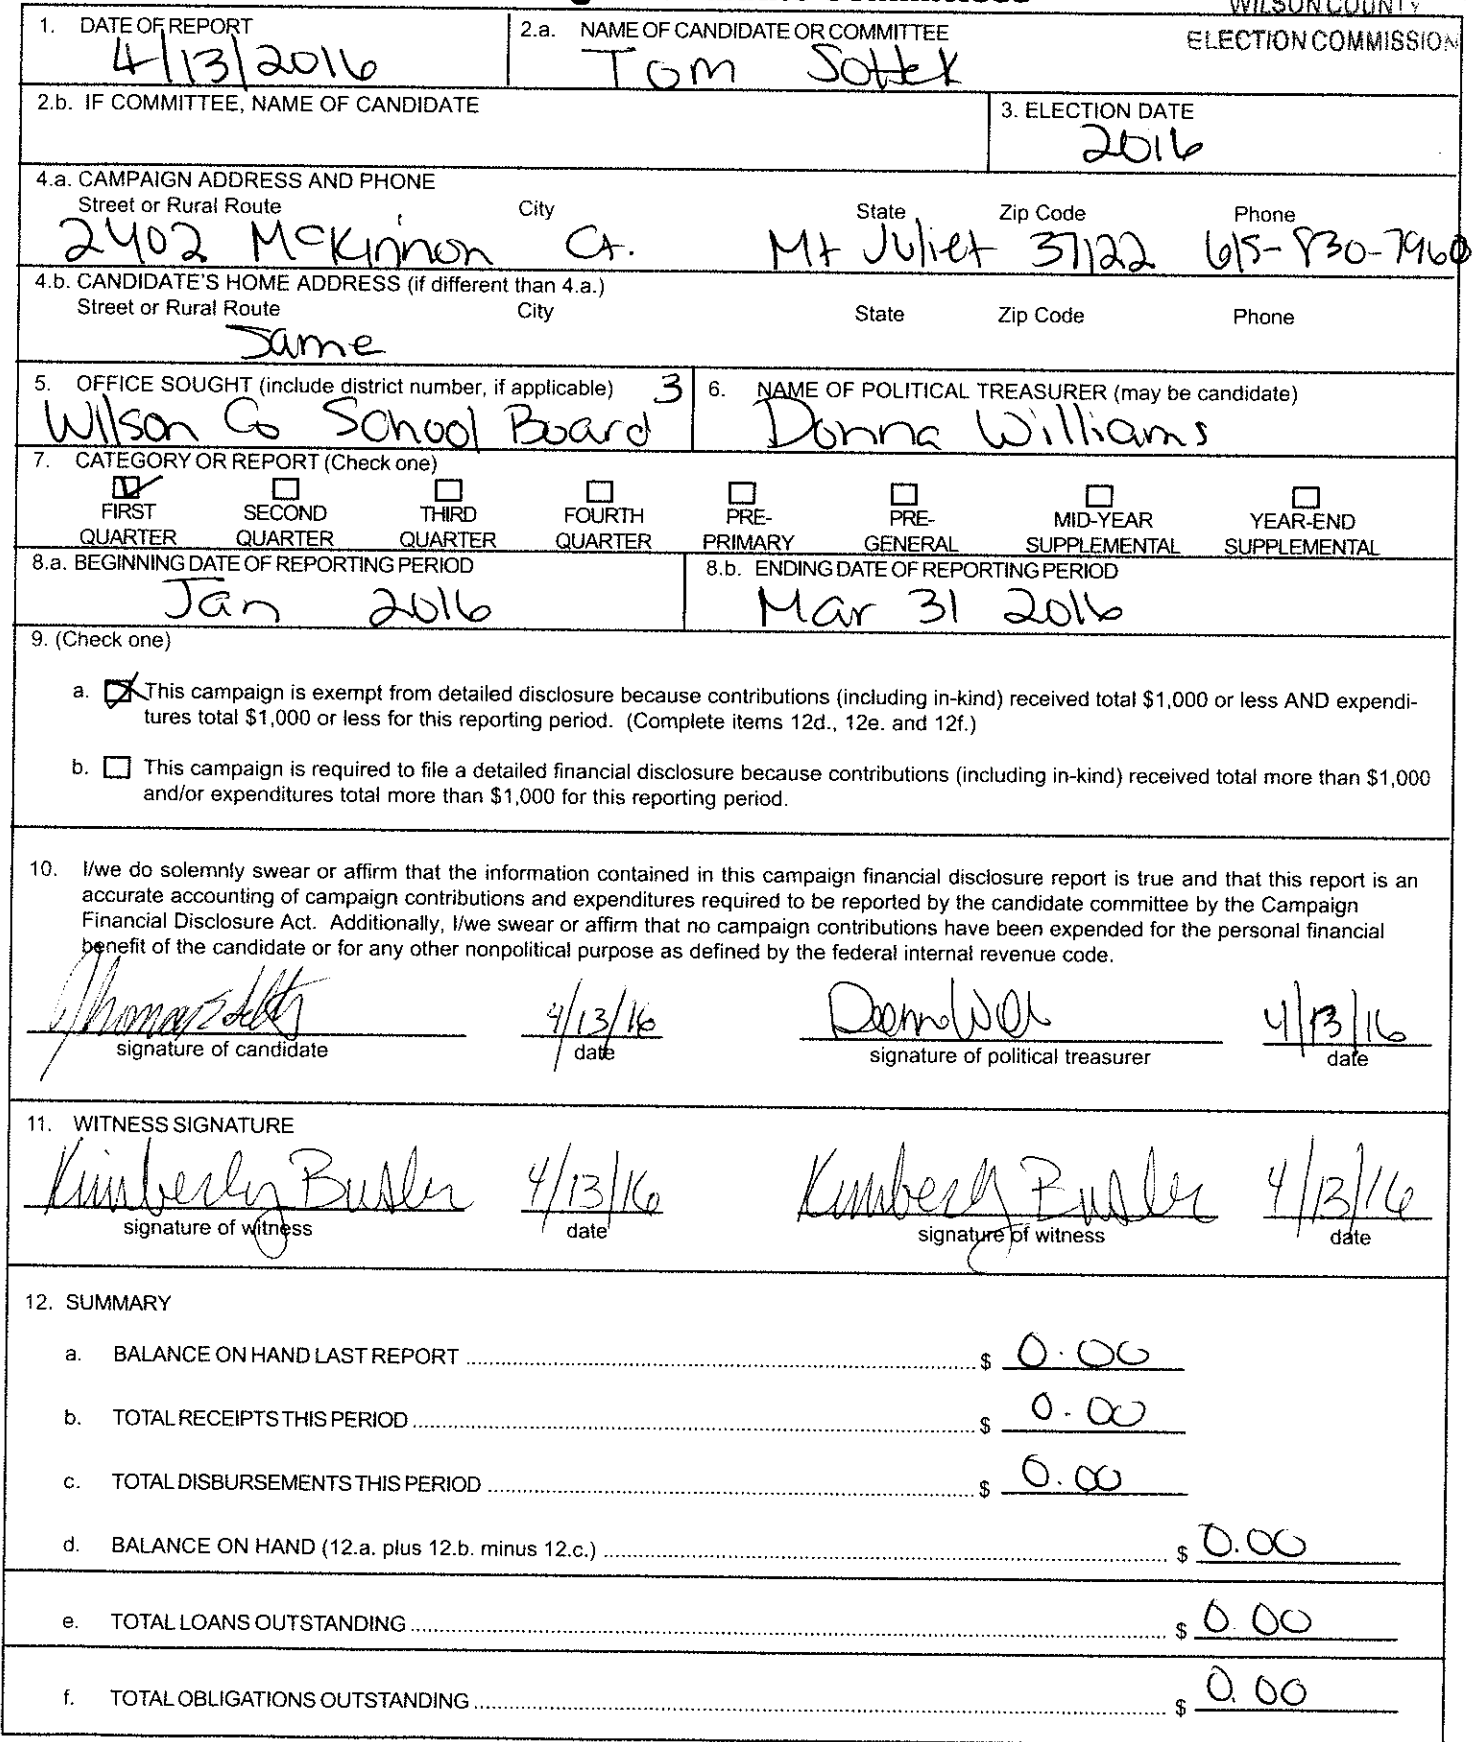 WILSON COUNTY
ELECTION COMMISSION
1. DATE OF REPORT
4/13/2016
2.a. NAME OF CANDIDATE OR COMMITTEE
Tom Sottek
2.b. IF COMMITTEE, NAME OF CANDIDATE
3. ELECTION DATE
2016
4.a. CAMPAIGN ADDRESS AND PHONE
Street or Rural Route City State Zip Code Phone
2402 McKinnon Ct. Mt Juliet 37122 615-830-7960
4.b. CANDIDATE'S HOME ADDRESS (if different than 4.a.)
Street or Rural Route City State Zip Code Phone
Same
5. OFFICE SOUGHT (include district number, if applicable) 3
Wilson Co School Board
6. NAME OF POLITICAL TREASURER (may be candidate)
Donna Williams
7. CATEGORY OR REPORT (Check one)
FIRST SECOND THIRD FOURTH PRE- PRE- MID-YEAR YEAR-END
QUARTER QUARTER QUARTER QUARTER PRIMARY GENERAL SUPPLEMENTAL SUPPLEMENTAL
8.a. BEGINNING DATE OF REPORTING PERIOD
Jan 2016
8.b. ENDING DATE OF REPORTING PERIOD
Mar 31 2016
9. (Check one)
a. This campaign is exempt from detailed disclosure because contributions (including in-kind) received total $1,000 or less AND expendi-
tures total $1,000 or less for this reporting period. (Complete items 12d., 12e. and 12f.)
b. This campaign is required to file a detailed financial disclosure because contributions (including in-kind) received total more than $1,000
and/or expenditures total more than $1,000 for this reporting period.
10. I/we do solemnly swear or affirm that the information contained in this campaign financial disclosure report is true and that this report is an
accurate accounting of campaign contributions and expenditures required to be reported by the candidate committee by the Campaign
Financial Disclosure Act. Additionally, I/we swear or affirm that no campaign contributions have been expended for the personal financial
benefit of the candidate or for any other nonpolitical purpose as defined by the federal internal revenue code.
4/13/16 4/13/16
signature of candidate date signature of political treasurer date
11. WITNESS SIGNATURE
Kimberly 4/13/16 Kimberly 4/13/16
signature of witness date signature of witness date
12. SUMMARY
a. BALANCE ON HAND LAST REPORT $ 0.00
b. TOTAL RECEIPTS THIS PERIOD $ 0.00
c. TOTAL DISBURSEMENTS THIS PERIOD $ 0.00
d. BALANCE ON HAND (12.a. plus 12.b. minus 12.c.) $ 0.00
e. TOTAL LOANS OUTSTANDING $ 0.00
f. TOTAL OBLIGATIONS OUTSTANDING $ 0.00